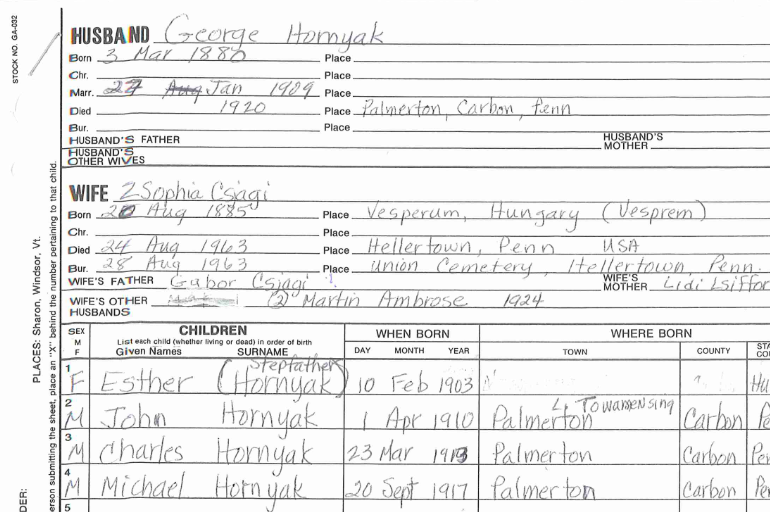 STOCK NO. GA-032
HUSBAND George Hornyak
Born 3 Mar 1880 Place
Chr. Place
Marr. 27 Aug Jan 1909 Place
Died 1920 Place Palmerton, Carbon, Penn
Bur. Place
HUSBAND'S FATHER HUSBAND'S MOTHER
HUSBAND'S OTHER WIVES
WIFE 2 Sophia Csjagi
Born 20 Aug 1885 Place Vesperum, Hungary (Vesprem)
Chr. Place
Died 24 Aug 1963 Place Hellertown, Penn USA
Bur. 28 Aug 1963 Place Union Cemetery, Hellertown, Penn.
WIFE'S FATHER Gabor Csjagi WIFE'S MOTHER Lidi Lsiffor
WIFE'S OTHER HUSBANDS (2) Martin Ambrose 1924
SEX M F CHILDREN WHEN BORN WHERE BORN
List each child (whether living or dead) in order of birth
Given Names SURNAME DAY MONTH YEAR TOWN COUNTY STA
1 F Esther (Stepfather Hornyak) 10 Feb 1903 Hu
2 M John Hornyak 1 Apr 1910 L. Towamensing Palmerton Carbon Pe
3 M Charles Hornyak 23 Mar 1913 Palmerton Carbon Pen
4 M Michael Hornyak 20 Sept 1917 Palmerton Carbon Pe
5
PLACES: Sharon, Windsor, Vt.
erson submitting the sheet, place an "X" behind the number pertaining to that child.
DER: